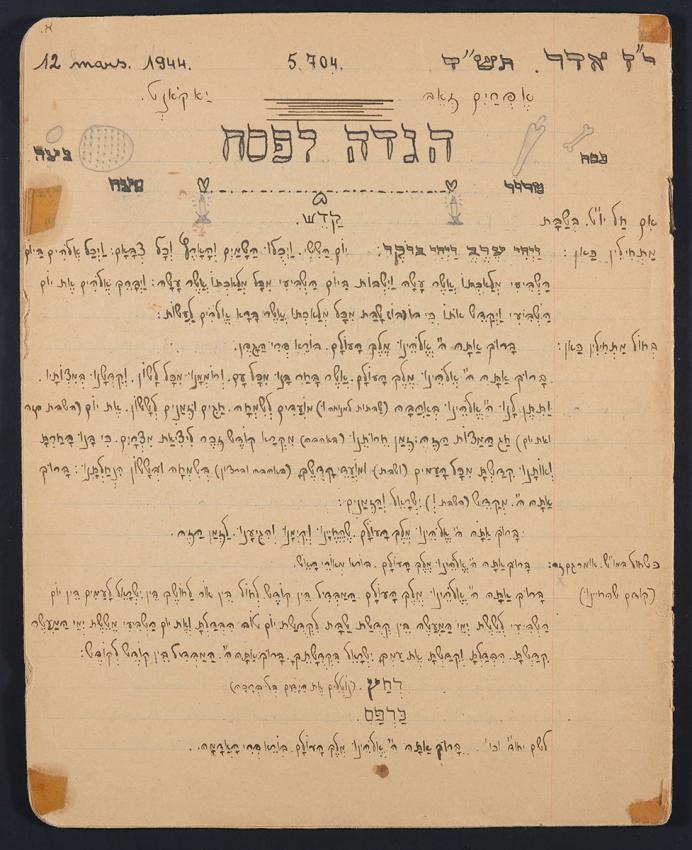 א.
י"ז אדר. תש"ד 5.704. 12 mars. 1944.
אפרים זאב יאקאנט.
הגדה לפסח
פסח ביצה
מרור מצה
קַדֵשׁ.
אם חל יו"ט בשַׁבָּת
מתחילין כַּאן: וַיְהִי עֶרֶב וַיְהִי בֹקֶר: יוֹם הַשִׁשִׁי. וַיְכֻלוּ הַשָׁמַיִם וְהָאָרֶץ וְכָל צְבָאָם: וַיְכַל אֱלֹהִים בַּיוֹם
הַשְׁבִיעִי מְלַאכְתּוֹ אֲשֶׁר עָשָׂה וַיִשְׁבּוֹת בַּיוֹם הַשְׁבִיעִי מִכָּל מְלַאכְתּוֹ אֲשֶׁר עָשָׂה: וַיְבָרֶךְ אֱלֹהִים אֶת יוֹם
הַשְׁבִיעִי וַיְקַדֵשׁ אוֹתוֹ כִּי בוֹ שָׁבַת מִכָּל מְלַאכְתּוֹ אֲשֶׁר בָּרָא אֱלֹהִים לַעֲשׂוֹת:
בְּחוֹל מַתְחִילִין כַּאן: בָּרוּךְ אַתָּה ה' אֱלֹהֵינוּ מֶלֶךְ הָעוֹלָם. בּוֹרֵא פְּרִי הַגָפֶן.
בָּרוּךְ אַתָּה ה' אֱלֹהֵינוּ מֶלֶךְ הָעוֹלָם. אֲשֶׁר בָּחַר בָּנוּ מִכָּל עָם. וְרוֹמְמָנוּ מִכָּל לָשׁוֹן. וְקִדְשָׁנוּ בְּמִצְוֹתָיו.
וַתִּתֶּן לָנוּ ה' אֱלֹהֵינוּ בְּאַהֲבָה (שבתות למנוחה ו) מוֹעֲדִים לְשִׂמְחָה. חַגִים וּזְמַנִים לְשָׂשׂוֹן. אֶת יוֹם (השבת הזה
ואת יום) חַג הַמַצוֹת הַזֶה: זְמַן חֵרוּתֵנוּ (באהבה) מִקְרָא קוֹדֶשׁ זֵכֶר לִיצִיאַת מִצְרָיִם. כִּי בָנוּ בָחַרְתָּ
וְאוֹתָנוּ קִדַשְׁתָּ מִכָּל הָעַמִים (ושבת) וּמוֹעֲדֵי קָדְשֶׁךָ (באהבה וברצון) בְּשִׂמְחָה וּבְשָׂשׂוֹן הִנְחַלְתָּנוּ: בָּרוּךְ
אַתָּה ה'. מְקַדֵשׁ (השבת ו) יִשְׂרָאֵל וְהַזְמַנִים:
בָּרוּךְ אַתָּה ה' אֱלֹהֵינוּ מֶלֶךְ הָעוֹלָם. שֶׁהֶחֱיָינוּ. וְקִיְמָנוּ. וְהִגִיעָנוּ. לַזְמַן הַזֶה.
כשחל במו"ש אומרים זה: בָּרוּךְ אַתָּה ה' אֱלֹהֵינוּ מֶלֶךְ הָעוֹלָם. בּוֹרֵא מְאוֹרֵי הָאֵשׁ.
(קודם שהחיינו) בָּרוּךְ אַתָּה ה' אֱלֹהֵינוּ מֶלֶךְ הָעוֹלָם. הַמַבְדִיל בֵּין קוֹדֶשׁ לְחוֹל בֵּין אוֹר לְחוֹשֶׁךְ בֵּין יִשְׂרָאֵל לָעַמִים בֵּין יוֹם
הַשְׁבִיעִי לְשֵׁשֶׁת יְמֵי הַמַעֲשֶׂה בֵּין קְדוּשַׁת שַׁבָּת לִקְדֻשַׁת יוֹם טוֹב הִבְדַלְתָּ וְאֶת יוֹם הַשְׁבִיעִי מִשֵׁשֶׁת יְמֵי הַמַעֲשֶׂה
קִדַשְׁתָּ. הִבְדַלְתָּ וְקִדַשְׁתָּ אֶת עַמְךָ יִשְׂרָאֵל בִּקְדֻשָׁתֶךָ. בָּרוּךְ אַתָּה ה'. הַמַבְדִיל בֵּין קוֹדֶשׁ לְקוֹדֶשׁ:
רְחַץ. (נוטלים את הידים בלי ברכה)
כַּרְפַּס
לשם יחוד וכו'. בָּרוּךְ אַתָּה ה' אֱלֹהֵינוּ מֶלֶךְ הָעוֹלָם. בּוֹרֵא פְּרִי הָאֲדָמָה.